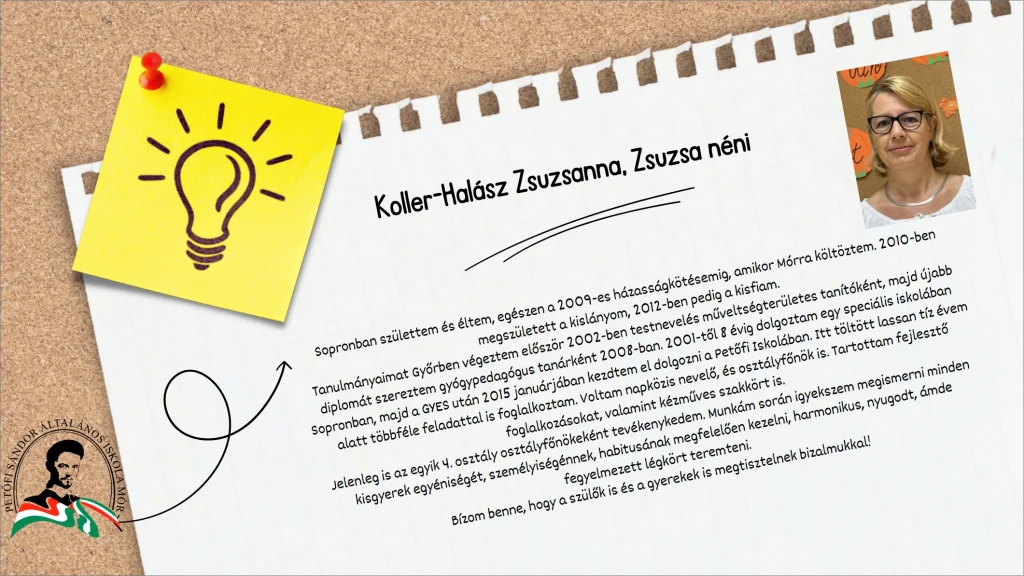 Koller-Halász Zsuzsanna, Zsuzsa néni
Sopronban születtem és éltem, egészen a 2009-es házasságkötésemig, amikor Mórra költöztem. 2010-ben
megszületett a kislányom, 2012-ben pedig a kisfiam.
Tanulmányaimat Győrben végeztem először 2002-ben testnevelés műveltségterületes tanítóként, majd újabb
diplomát szereztem gyógypedagógus tanárként 2008-ban. 2001-től 8 évig dolgoztam egy speciális iskolában
Sopronban, majd a GYES után 2015 januárjában kezdtem el dolgozni a Petőfi Iskolában. Itt töltött lassan tíz évem
alatt többféle feladattal is foglalkoztam. Voltam napközis nevelő, és osztályfőnök is. Tartottam fejlesztő
foglalkozásokat, valamint kézműves szakkört is.
Jelenleg is az egyik 4. osztály osztályfőnökeként tevékenykedem. Munkám során igyekszem megismerni minden
kisgyerek egyéniségét, személyiségénnek, habitusának megfelelően kezelni, harmonikus, nyugodt, ámde
fegyelmezett légkört teremteni.
Bízom benne, hogy a szülők is és a gyerekek is megtisztelnek bizalmukkal!
PETŐFI SÁNDOR ÁLTALÁNOS ISKOLA MÓR